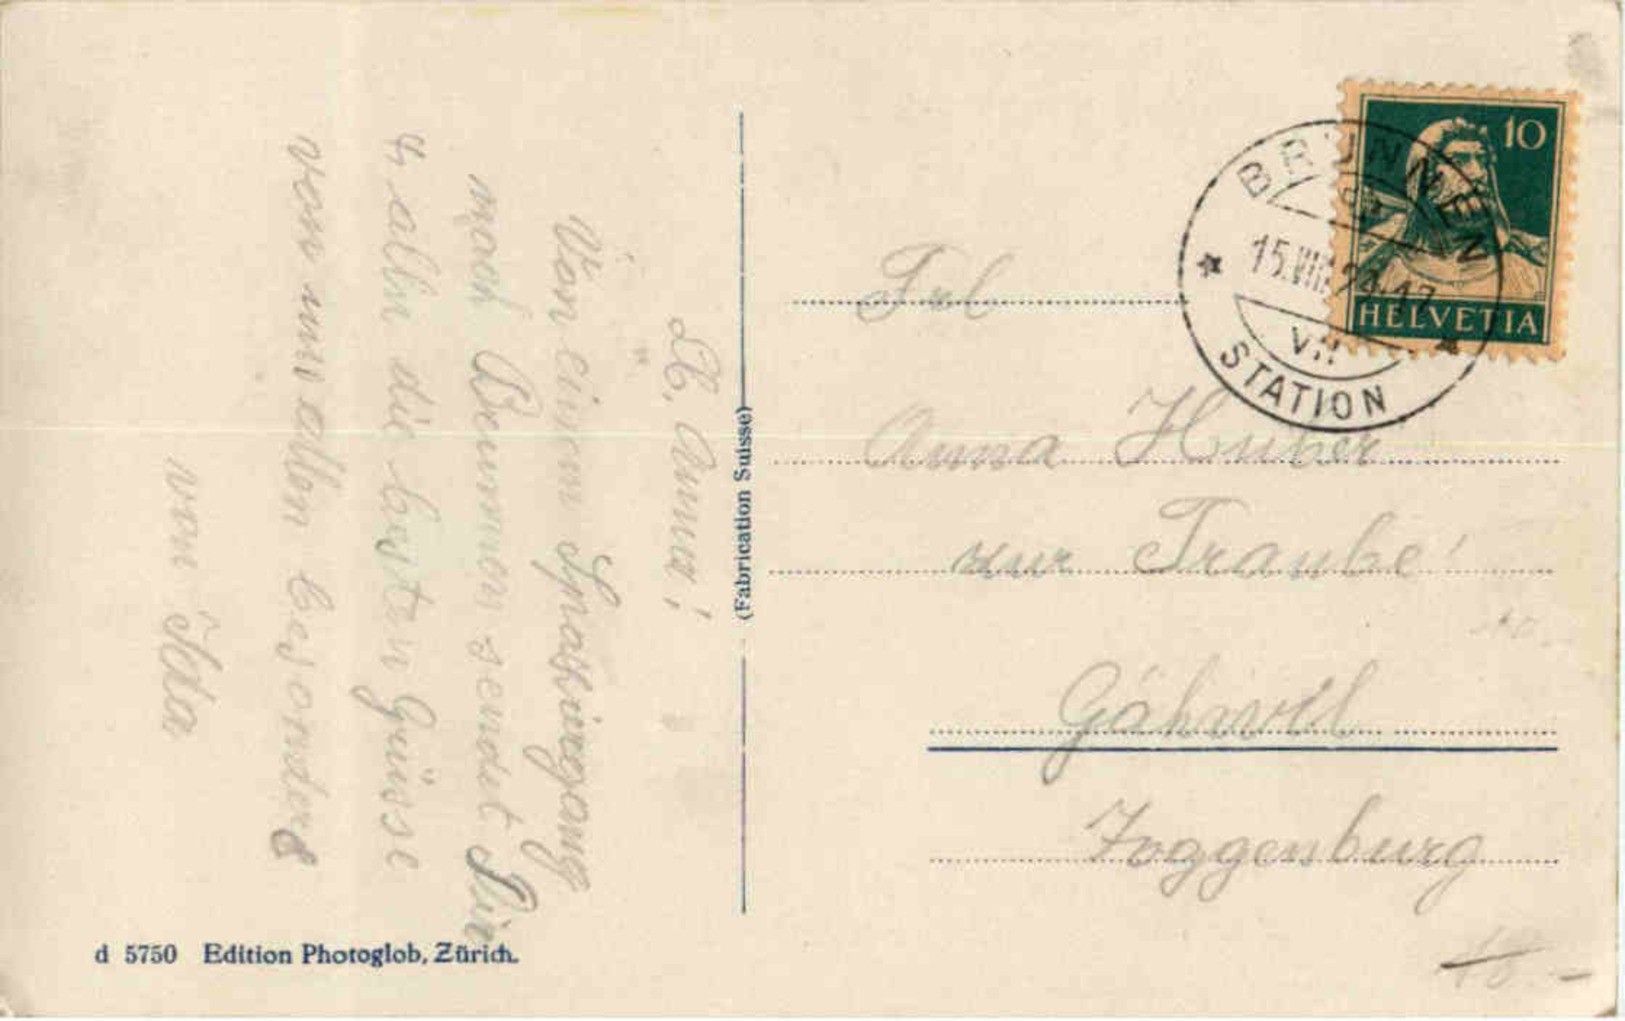 L. Anna!
Von einem Spaziergang
nach Brunnen sendet Dir
& allen die besten Grüsse
von uns allen besonders
von Ida
d 5750 Edition Photoglob, Zürich.
(Fabrication Suisse)
10
HELVETIA
BRUNNEN
15.VIII.
VII
STATION
Frl
Anna Huber
zur Traube!
Gähwil
Toggenburg